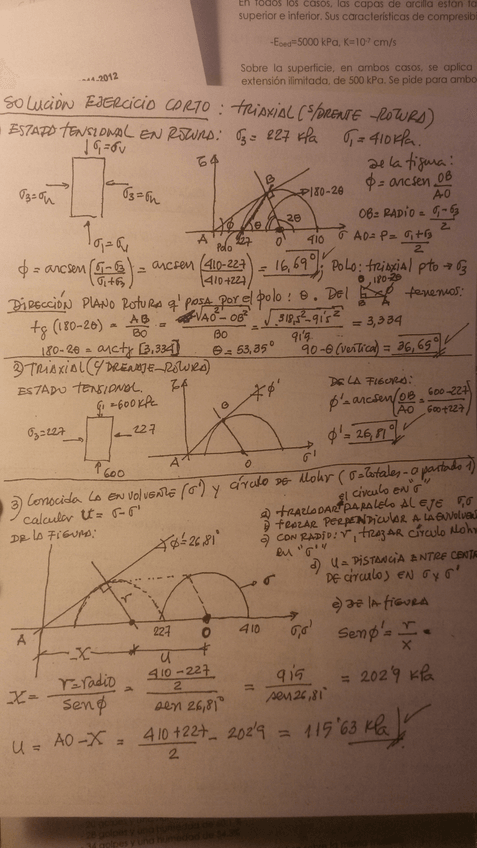 En todos los casos, las capas de arcilla están
superior e inferior. Sus características de compresibi
-Eoed=5000 kPa, K=10⁻⁷ cm/s
Sobre la superficie, en ambos casos, se aplica
extensión ilimitada, de 500 kPa. Se pide para ambo
2012
SOLUCIÓN EJERCICIO CORTO: TRIAXIAL (S/DRENTE-ROTURA)
ESTADO TENSIONAL EN ROTURA: σ3 = 227 kPa σ1 = 410 kPa.
σ1=σv
σ3=σh
σ3=σh
σ1=σv
τ
B
180-2θ
φ
θ
2θ
A
Polo
227
0
410
σ
De la figura:
φ = arcsen OB/AO
OB = RADIO = (σ1-σ3)/2
AO = P = (σ1+σ3)/2
φ = arcsen((σ1-σ3)/(σ1+σ3)) = arcsen((410-227)/(410+227)) = 16,69°; POLO: TRIAXIAL pto → σ3
DIRECCIÓN PLANO ROTURA q' pasa por el polo: θ. DEL tenemos:
tg(180-2θ) = AB/BO = √(AO²-OB²)/BO = √(318,5²-91'5²)/91'5 = 3,334
180-2θ = arctg [3,334] θ = 53,35° 90-θ (vertical) = 36,65°
2) TRIAXIAL (C/DRENAJE-ROTURA)
ESTADO TENSIONAL.
σ1=600 kPa
σ3=227
227
600
τ
φ'
A
O
σ'
DE LA FIGURA:
φ' = arcsen(OB/AO = (600-227)/(600+227))
φ' = 26,81°
3) Conocida LA ENVOLVENTE (σ') y círculo DE Mohr (σ=totales-apartado 1)
calcular U = σ-σ'
DE LA FIGURA:
el círculo EN "σ"
a) TRASLADAR PARALELO AL EJE σ,σ'
b) TRAZAR PERPENDICULAR A LA ENVOLVEN
c) CON RADIO: r, TRAZAR CÍRCULO Mohr
EN "σ'"
d) U = DISTANCIA ENTRE CENTR
DE CÍRCULOS EN σ y σ'
e) DE LA FIGURA
sen φ' = r/x
φ'=26,81°
r
σ
A
227
O
410
σ,σ'
X
U
X = r=radio/senφ = ((410-227)/2)/sen 26,81° = 91'5/sen 26,81° = 202'9 kPa
U = AO-X = (410+227)/2 - 202'9 = 115'63 kPa